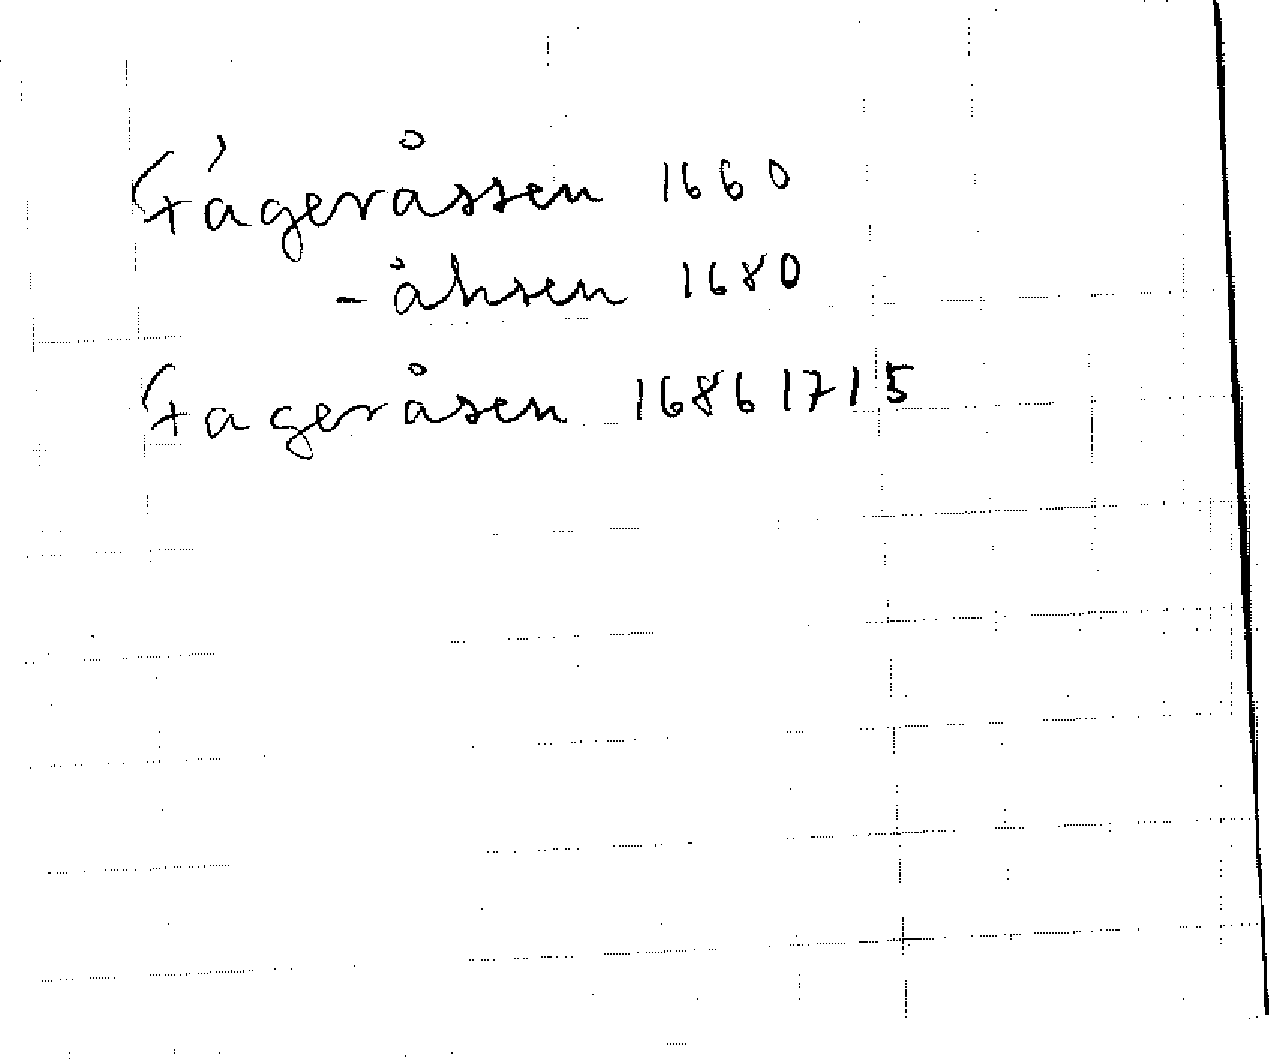 Fágeråssen 1660
- åhsen 1680
Fageråsen 1686 1715